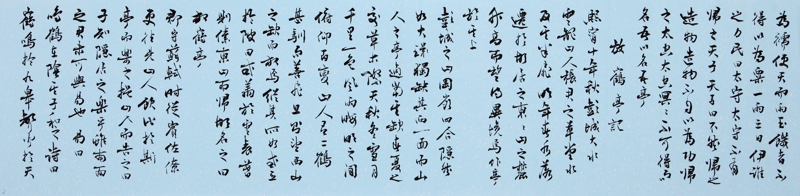 為襦使天而雨玉饑者不
得以為粟一雨三日伊誰
之力民曰太守太守不有
歸之天子天子曰不然歸之
造物造物不自以為功歸
之太空太空冥冥不可得而
名吾以名吾亭
放鶴亭記
熙寧十年秋彭城大水
雲龍山人張君之草堂水
及其半扉明年春水落
遷於故居之東東山之麓
升高而望得異境焉作亭
於其上
彭城之山岡嶺四合隱然
如大環獨缺其西一面而山
人之亭適當其缺春夏之
交草木際天秋冬雪月
千里一色風雨晦明之間
俯仰百變山人有二鶴
甚馴而善飛旦則望西山
之缺而放焉縱其所如或立
於陂田或翔於雲表暮
則傃東山而歸故名之曰
放鶴亭
郡守蘇軾時從賓佐僚
吏往見山人飲酒於斯
亭而樂之挹山人而告之曰
子知隱居之樂乎雖南面
之君未可與易也易曰
鳴鶴在陰其子和之詩曰
鶴鳴於九皋聲聞於天